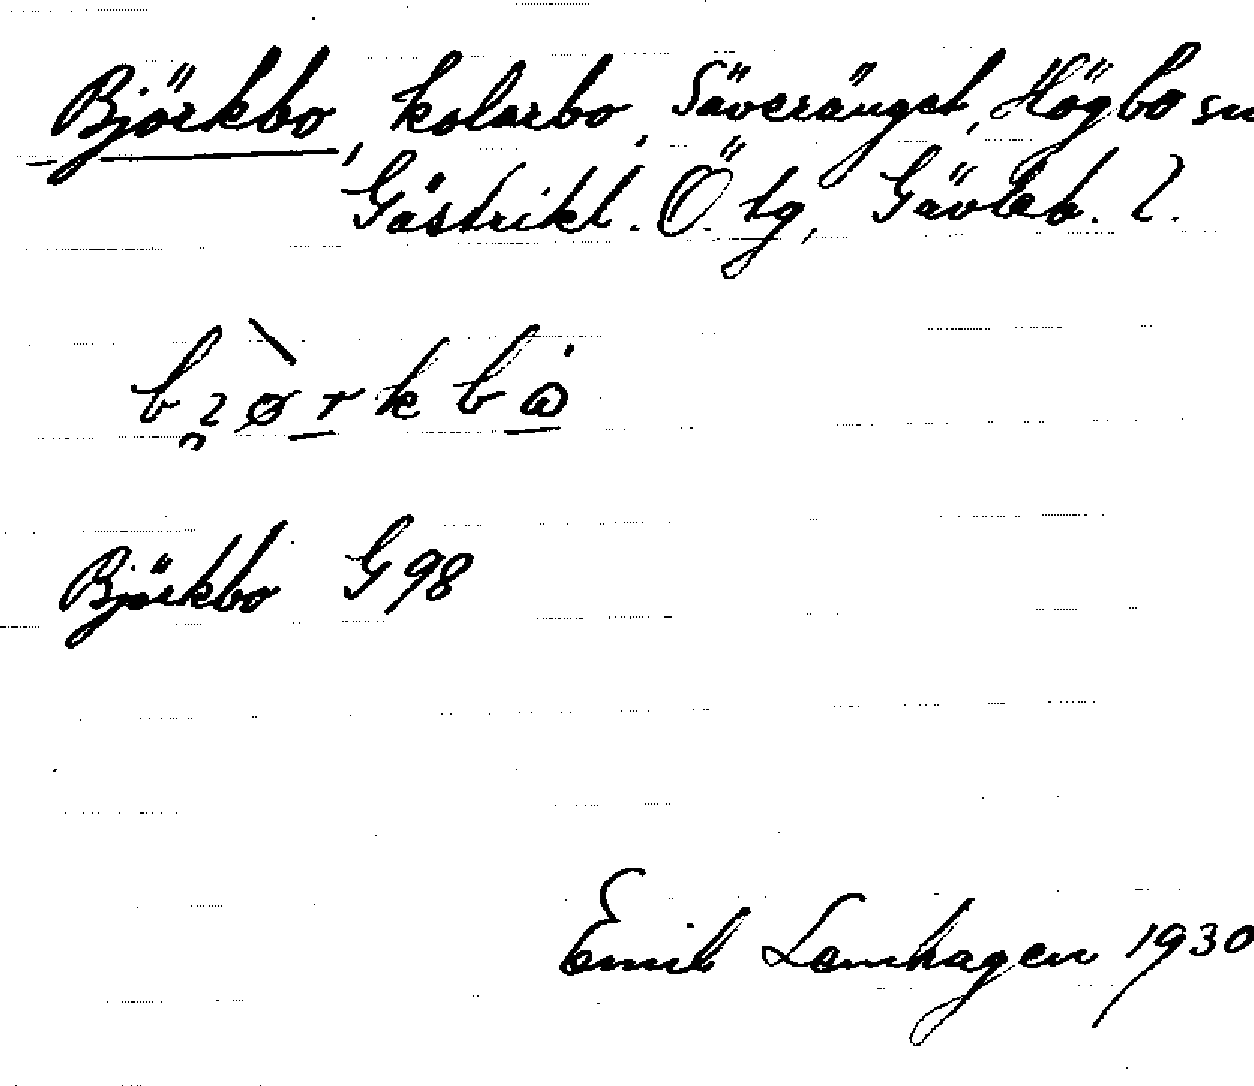 Björkbo, kolarbo, Säveränget, Högbo sn
Gästrikl. Ö. tg, Gävleb. l.
Björkbo G 98
Emil Lenhagen 1930